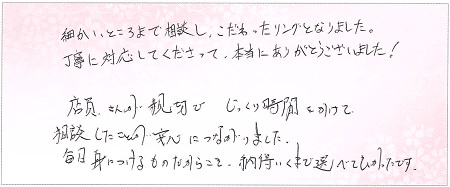 細かいところまで相談し、こだわったリングとなりました。
丁寧に対応してくださって、本当にありがとうございました！
店員さんが親切で じっくり時間をかけて
相談したことが安心につながりました。
毎日身につけるものだからこそ、納得いくまで選べてよかったです。